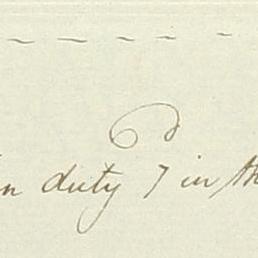 in duty 7 in th